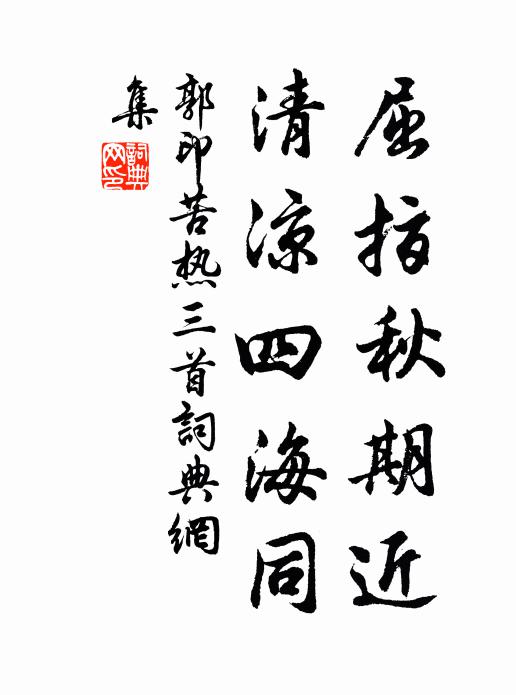 屈指秋期近
清凉四海同
郭印苦热三首詞典網
集
詞典
网印